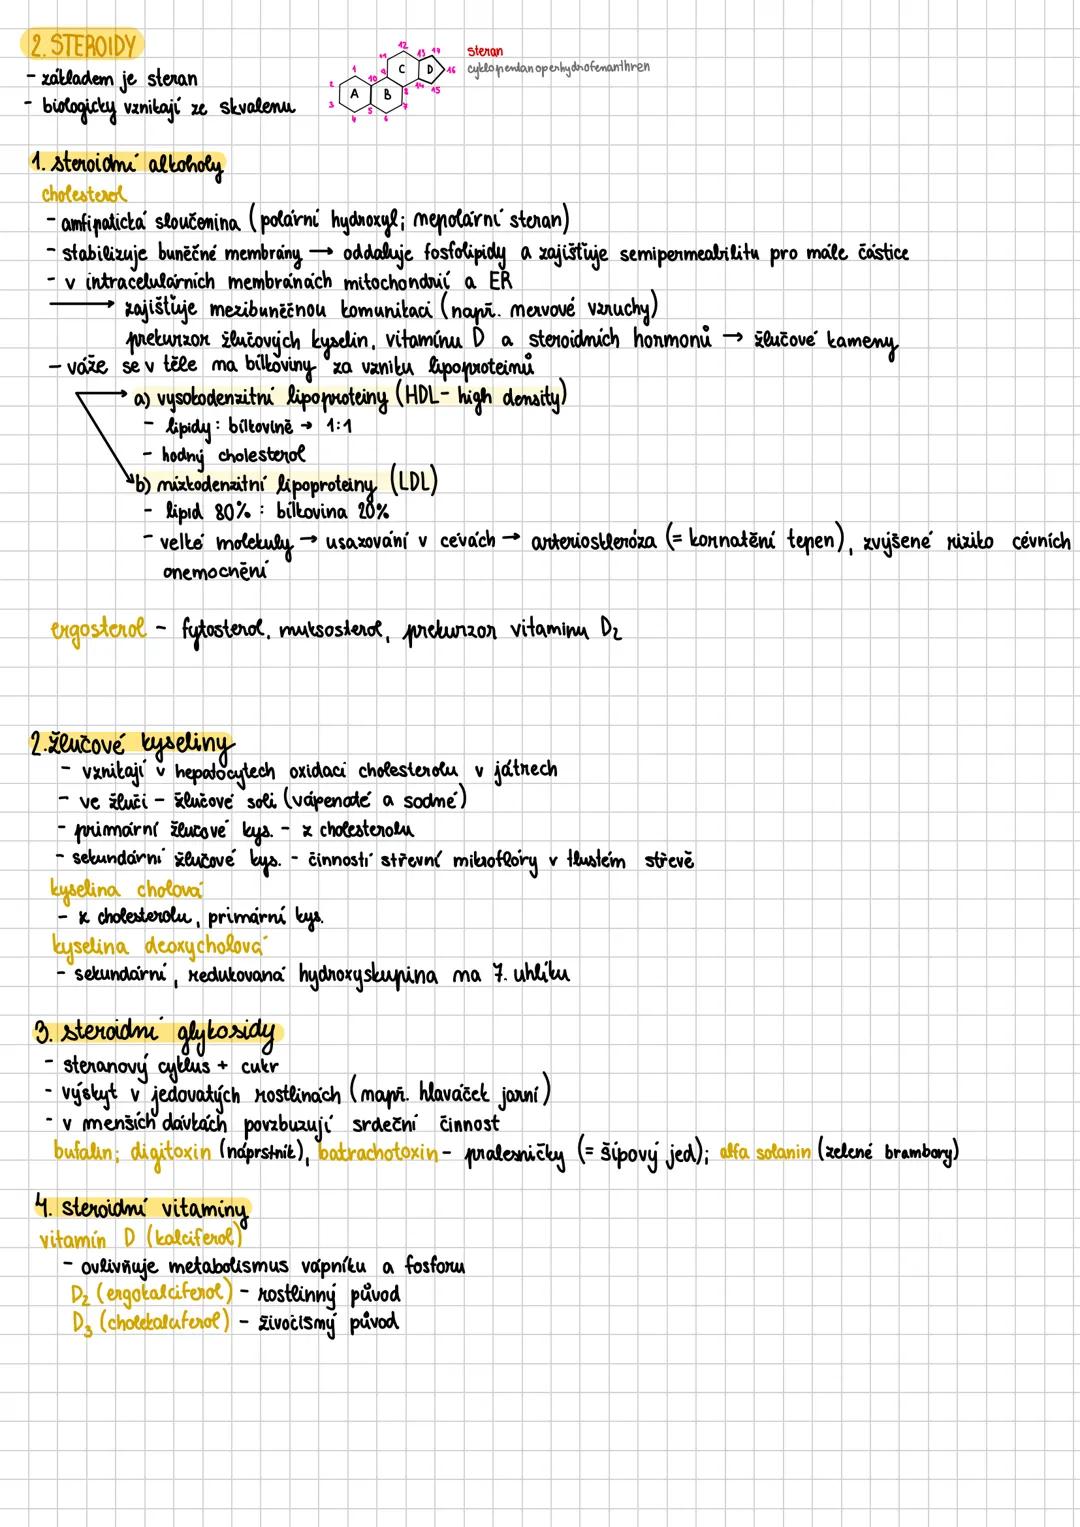 2. STEROIDY
- základem je steran
- biologicky vznikají ze skvalenu
1 2 3 4 5 6 7 8 9 10 11 12 13 14 15 16 17
A B C D
steran
cyklopentanoperhydrofenanthren
1. steroidní alkoholy
cholesterol
- amfipatická sloučenina (polární hydroxyl; nepolární steran)
- stabilizuje buněčné membrány → oddaluje fosfolipidy a zajišťuje semipermeabilitu pro malé částice
- v intracelulárních membránách mitochondrií a ER
→ zajišťuje mezibuněčnou komunikaci (např. nervové vzruchy)
prekurzor žlučových kyselin, vitamínu D a steroidních hormonů → žlučové kameny
- váže se v těle na bílkoviny za vzniku lipoproteinů
→ a) vysokodenzitní lipoproteiny (HDL- high density)
- lipidy : bílkovině → 1:1
- hodný cholesterol
b) nízkodenzitní lipoproteiny (LDL)
- lipid 80% : bílkovina 20%
- velké molekuly → usazování v cévách → arterioskleróza (= kornatění tepen), zvýšené riziko cévních
onemocnění
ergosterol - fytosterol, muksosterol, prekurzor vitaminu D2
2. žlučové kyseliny
- vznikají v hepatocytech oxidací cholesterolu v játrech
- ve žluči - žlučové soli (vápenaté a sodné)
- primární žlučové kys. - z cholesterolu
- sekundární žlučové kys. - činností střevní mikroflóry v tlustém střevě
kyselina cholová
- z cholesterolu, primární kys.
kyselina deoxycholová
- sekundární, redukovaná hydroxyskupina na 7. uhlíku
3. steroidní glykosidy
- steranový cyklus + cukr
- výskyt v jedovatých rostlinách (např. hlaváček jarní)
- v menších dávkách povzbuzují srdeční činnost
bufalin; digitoxin (náprstník), batrachotoxin - pralesničky (= šípový jed); alfa solanin (zelené brambory)
4. steroidní vitamíny
vitamín D (kalciferol)
- ovlivňuje metabolismus vápníku a fosforu
D2 (ergokalciferol) - rostlinný původ
D3 (cholekalciferol) - živočišný původ